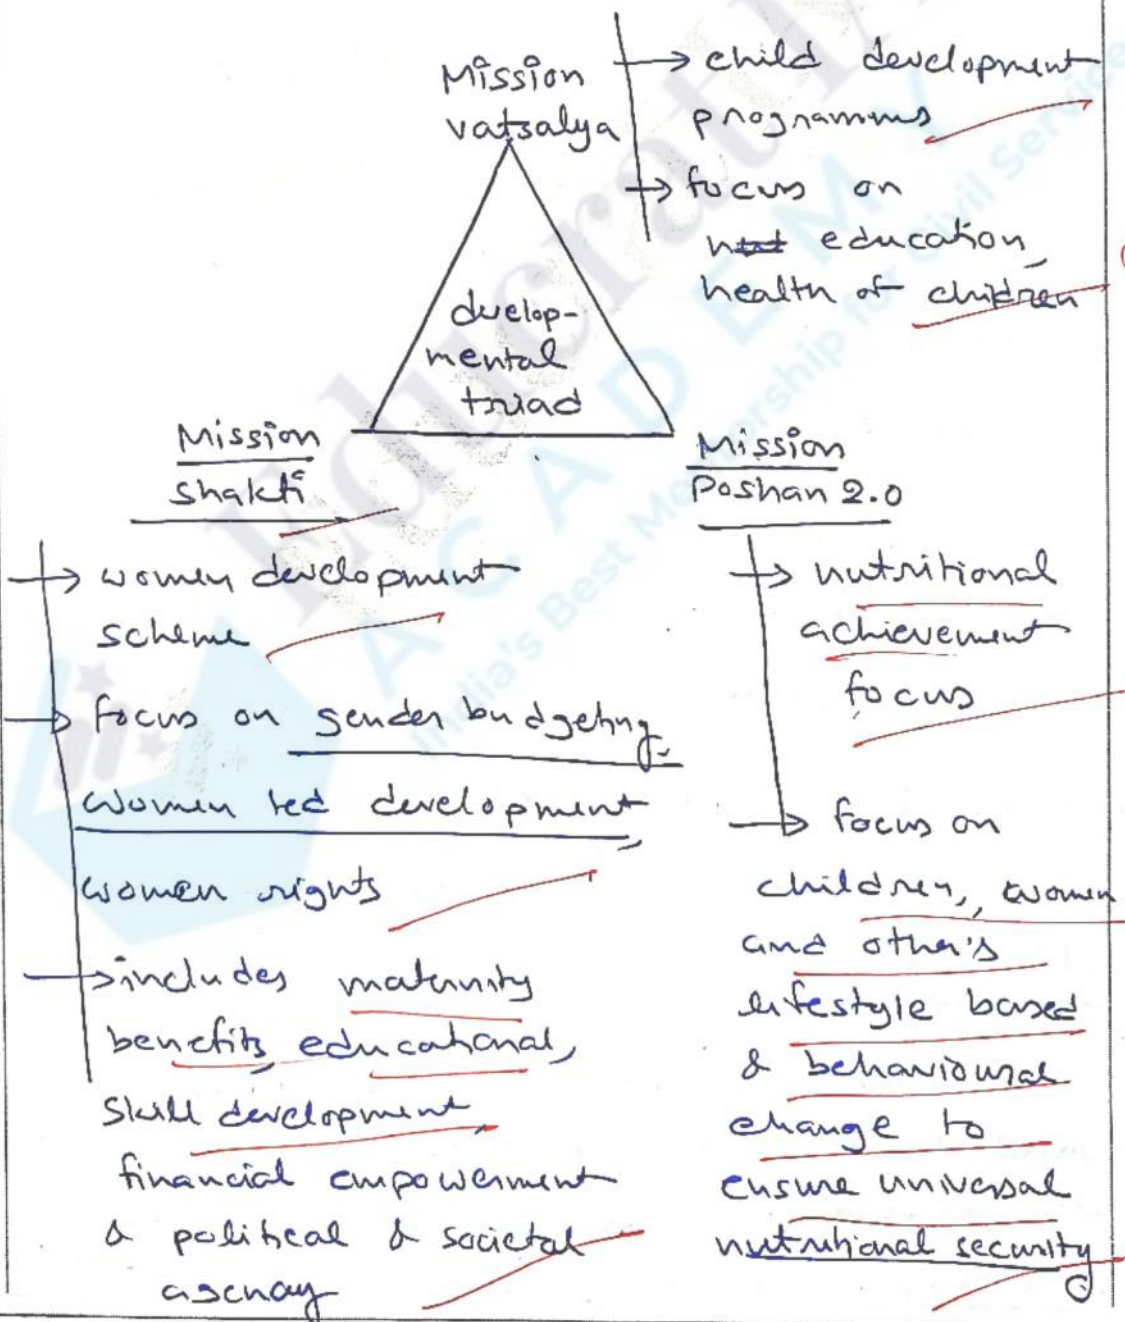 Mission
vatsalya
→ child development
programms
→ focus on
education,
health of children
develop-
mental
triad
Mission
Shakti
→ women development
scheme
→ focus on gender budgeting,
women led development,
women rights
→ includes maternity
benefits, educational,
Skill development,
financial empowerment
& political & societal
agency
Mission
Poshan 2.0
→ nutritional
achievement
focus
→ focus on
children, women
and other's
lifestyle based
& behavioural
change to
ensure universal
nutritional security
Educrat
ACADEMY
India's Best Mentorship for Civil Service